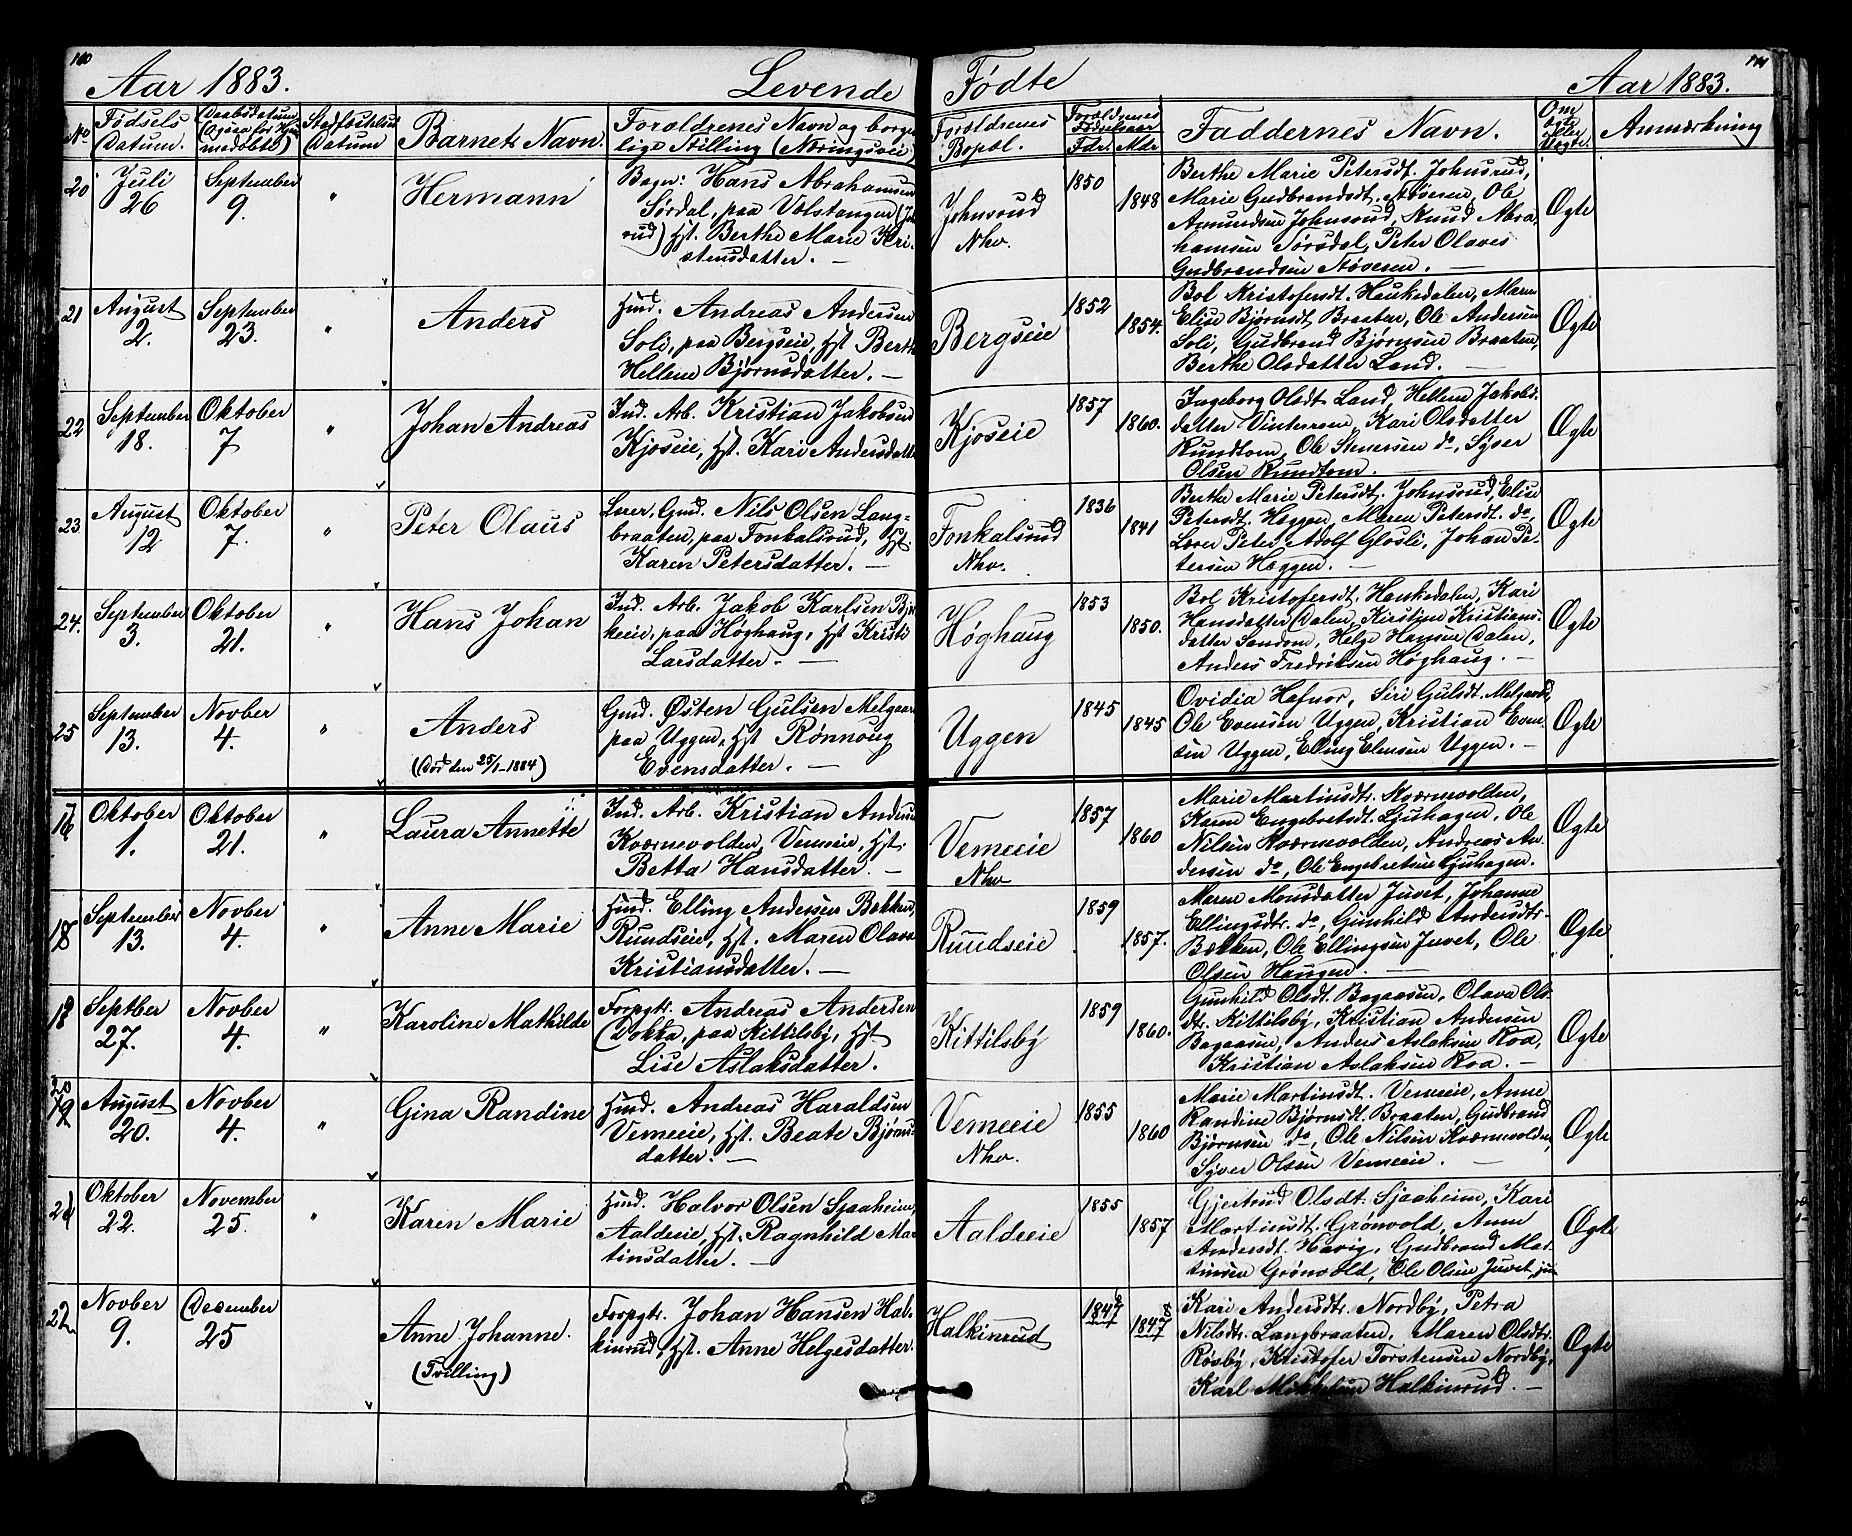 Aar 1883. Levende Fødte Aar 1883.
No Fødsels Datum. Daabsdatum Stadfæstelses Datum Barnets Navn. Forældrenes Navn og borgerlige Stilling (Næringsvei) Forældrenes Bopæl. Forældrenes Fødselsaar Fdr. Mdr. Faddernes Navn. Om ægte eller uægte. Anmærkning
20 Juli 26 September 9. " Hermann
Bager: Hans Abrahamsen
Sørdal, paa Volstangen (Joh
rud) Hst. Berthe Marie Kri-
stensdatter. —
Johnsrud Nhv. 1850 1848
Berthe Marie Petersdt. Johnsrud,
Marie Gudbrandsdt. Støveren, Ole
Amundsen Johnsrud, Knud Abra-
hamsen Sørsdal, Peter Olaves
Gudbrandsen Støveren. —
Ægte
21 August 2. September 23. " Anders
Hmd. Andreas Andersen
Soli, paa Bergseie, Hst Berthe
Hellene Bjørnsdatter. —
Bergseie 1852 1854.
Bol Kristofersdt. Haukedalen, Maren
Elise Bjørnsdt. Braaten, Ole Andersen
Soli, Gudbrand Bjørnsen Braaten,
Berthe Olsdatter Land. —
Ægte
22 September 18. Oktober 7 " Johan Andreas
Ind. Arb. Kristian Jakobsen
Kjoseie, Hst. Kari Andersdatter
Kjoseie 1857 1860.
Ingeborg Olsdt. Land, Hellene Jakobs-
datter Vinterroen, Kari Olsdatter
Rundtom, Ole Stenersen do, Syver
Olsen Rundtom.
Ægte
23 August 12 Oktober 7. " Peter Olaus
Lærer, Gmd. Nils Olsen Lang-
braaten, paa Fonkalsrud, Hst.
Karen Petersdatter. —
Fonkalsrud Nhv. 1836 1841
Berthe Marie Petersdt. Johnsrud, Elise
Petersdt. Heggen, Maren Petersdt. do,
Lærer Peter Adolf Glosli, Johan Pe-
tersen Heggen. —
Ægte
24. September 3. Oktober 21. " Hans Johan
Ind. Arb. Jakob Karlsen
keeie, paa Høghaug, Hst Kristi
Larsdatter. —
Høghaug 1853 1850.
Bol Kristofersdt. Haukedalen, Kari
Hansdatter Dalen, Kirstine Kristians-
datter Sandom, Helge Hansen Dalen,
Anders Fredriksen Høghaug. —
Ægte
25 September 13. Novber 4. " Anders
(Død den 25/1-1884)
Gmd. Østen Gulsen Melgaard
paa Uggen, Hst Rønnoug
Evensdatter. —
Uggen 1845 1845
Ovidia Hafnor, Siri Gulsdt. Melgaard,
Ole Evensen Uggen, Kristian Even-
sen Uggen, Elling Elensen Uggen. —
Ægte
16 Oktober 1. Oktober 21. " Laura Annette
Ind. Arb. Kristian Anders
Kværnevolden, Vemeeie, Hst.
Betta Hansdatter. —
Vemeeie Nhv 1857 1860
Marie Martinsdtr. Kværnevolden,
Karen Engebretsdt. Ljushagen, Ole
Nilsen Kværnevolden, Andreas An-
dersen do, Ole Engebretsen Ljushagen.
Ægte
18 September 13. Novber 4. " Anne Marie
Hmd. Elling Andersen Bækken,
Rundseie, Hst. Maren Olava
Kristiansdatter. —
Ruudseie 1859 1857.
Maren Monsdatter Juvet, Johanne
Ellingsdtr. do, Gunhild Andersdtr.
Bækken, Ole Ellingsen Juvet, Ole
Olsen Haugen. —
Ægte
18 Septber 27. Novber 4. " Karoline Mathilde
Forpgtr. Andreas Andersen
Dokka, paa Kittilsby, Hst
Lise Aslaksdatter.
Kittilsby 1859 1860.
Gunhild Olsdt. Bagaasen, Olava Ols-
dtr. Kittilsby, Kristian Andersen
Bagaasen, Anders Aslaksen Roa,
Kristian Aslaksen Roa. —
Ægte
20 August 20. Novber 4. " Gina Randine
Hmd. Andreas Haraldsen
Vemeeie, Hst. Beate Bjørns-
datter. —
Vemeeie Nhv. 1855 1860
Marie Martinsdt. Vemeeie, Anne
Randine Bjørnsdt. Braaten, Gudbrand
Bjørnsen do, Ole Nilsen Kværnevolden,
Syver Olsen Vemeeie. —
Ægte
21 Oktober 22. November 25. " Karen Marie
Hmd. Halvor Olsen Sjaaheim,
Aaldeeie, Hst. Ragnhild Mar-
tinsdatter. —
Aaldeeie 1855 1857
Gjertrud Olsdt. Sjaaheim, Kari
Martinsdt. Grønvold, Anne
Andersdt. Havig, Gudbrand Mar-
tinsen Grønvold, Ole Olsen Juvet, jun
Ægte
22 Novber 9. Desember 25 Anne Johanne.
(Tvilling)
Forpgtr. Johan Hansen Hal-
kinrud, Hst. Anne Helgesdatter.
Halkinrud 1847 1847
Kari Andersdtr. Nordby, Petra
Nilsdtr. Langbraaten, Maren Olsdtr.
Røsby, Kristofer Torstensen Nordby,
Karl Mikkelsen Halkinrud. —
Ægte